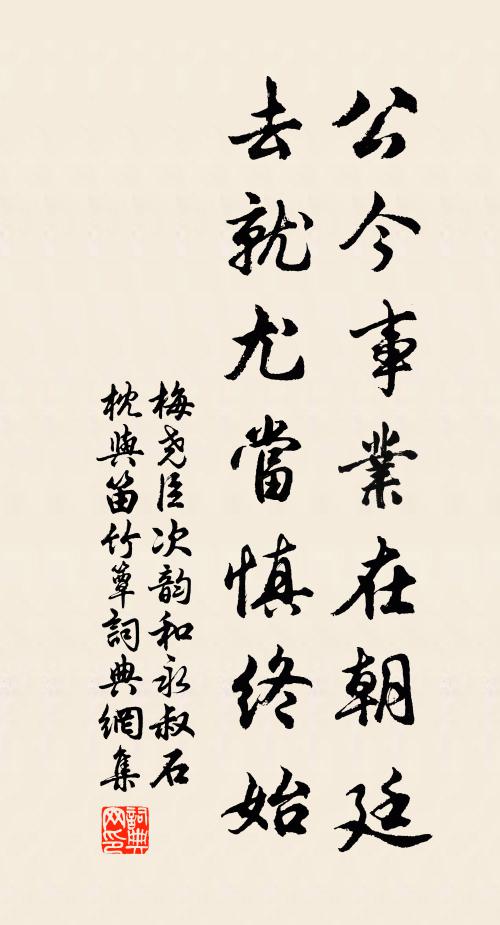 公今事業在朝廷
去就尤當慎終始
梅堯臣次韵和永叔石
枕與笛竹簟詞典網集
詞典網印